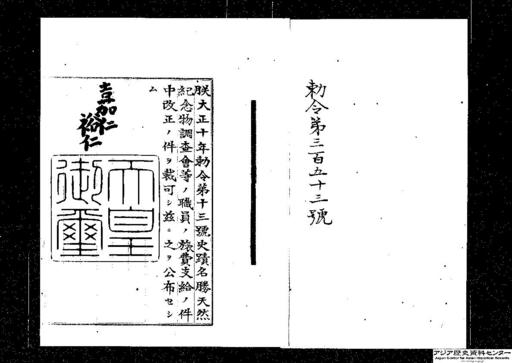 勅令第三百五十三號
朕大正十年勅令第十三號史蹟名勝天然
紀念物調査會等ノ職員ノ旅費支給ノ件
中改正ノ件ヲ裁可シ茲ニ之ヲ公布セシ
ム
嘉仁
裕仁
天皇
御璽
アジア歴史資料センター
Japan Center for Asian Historical Records